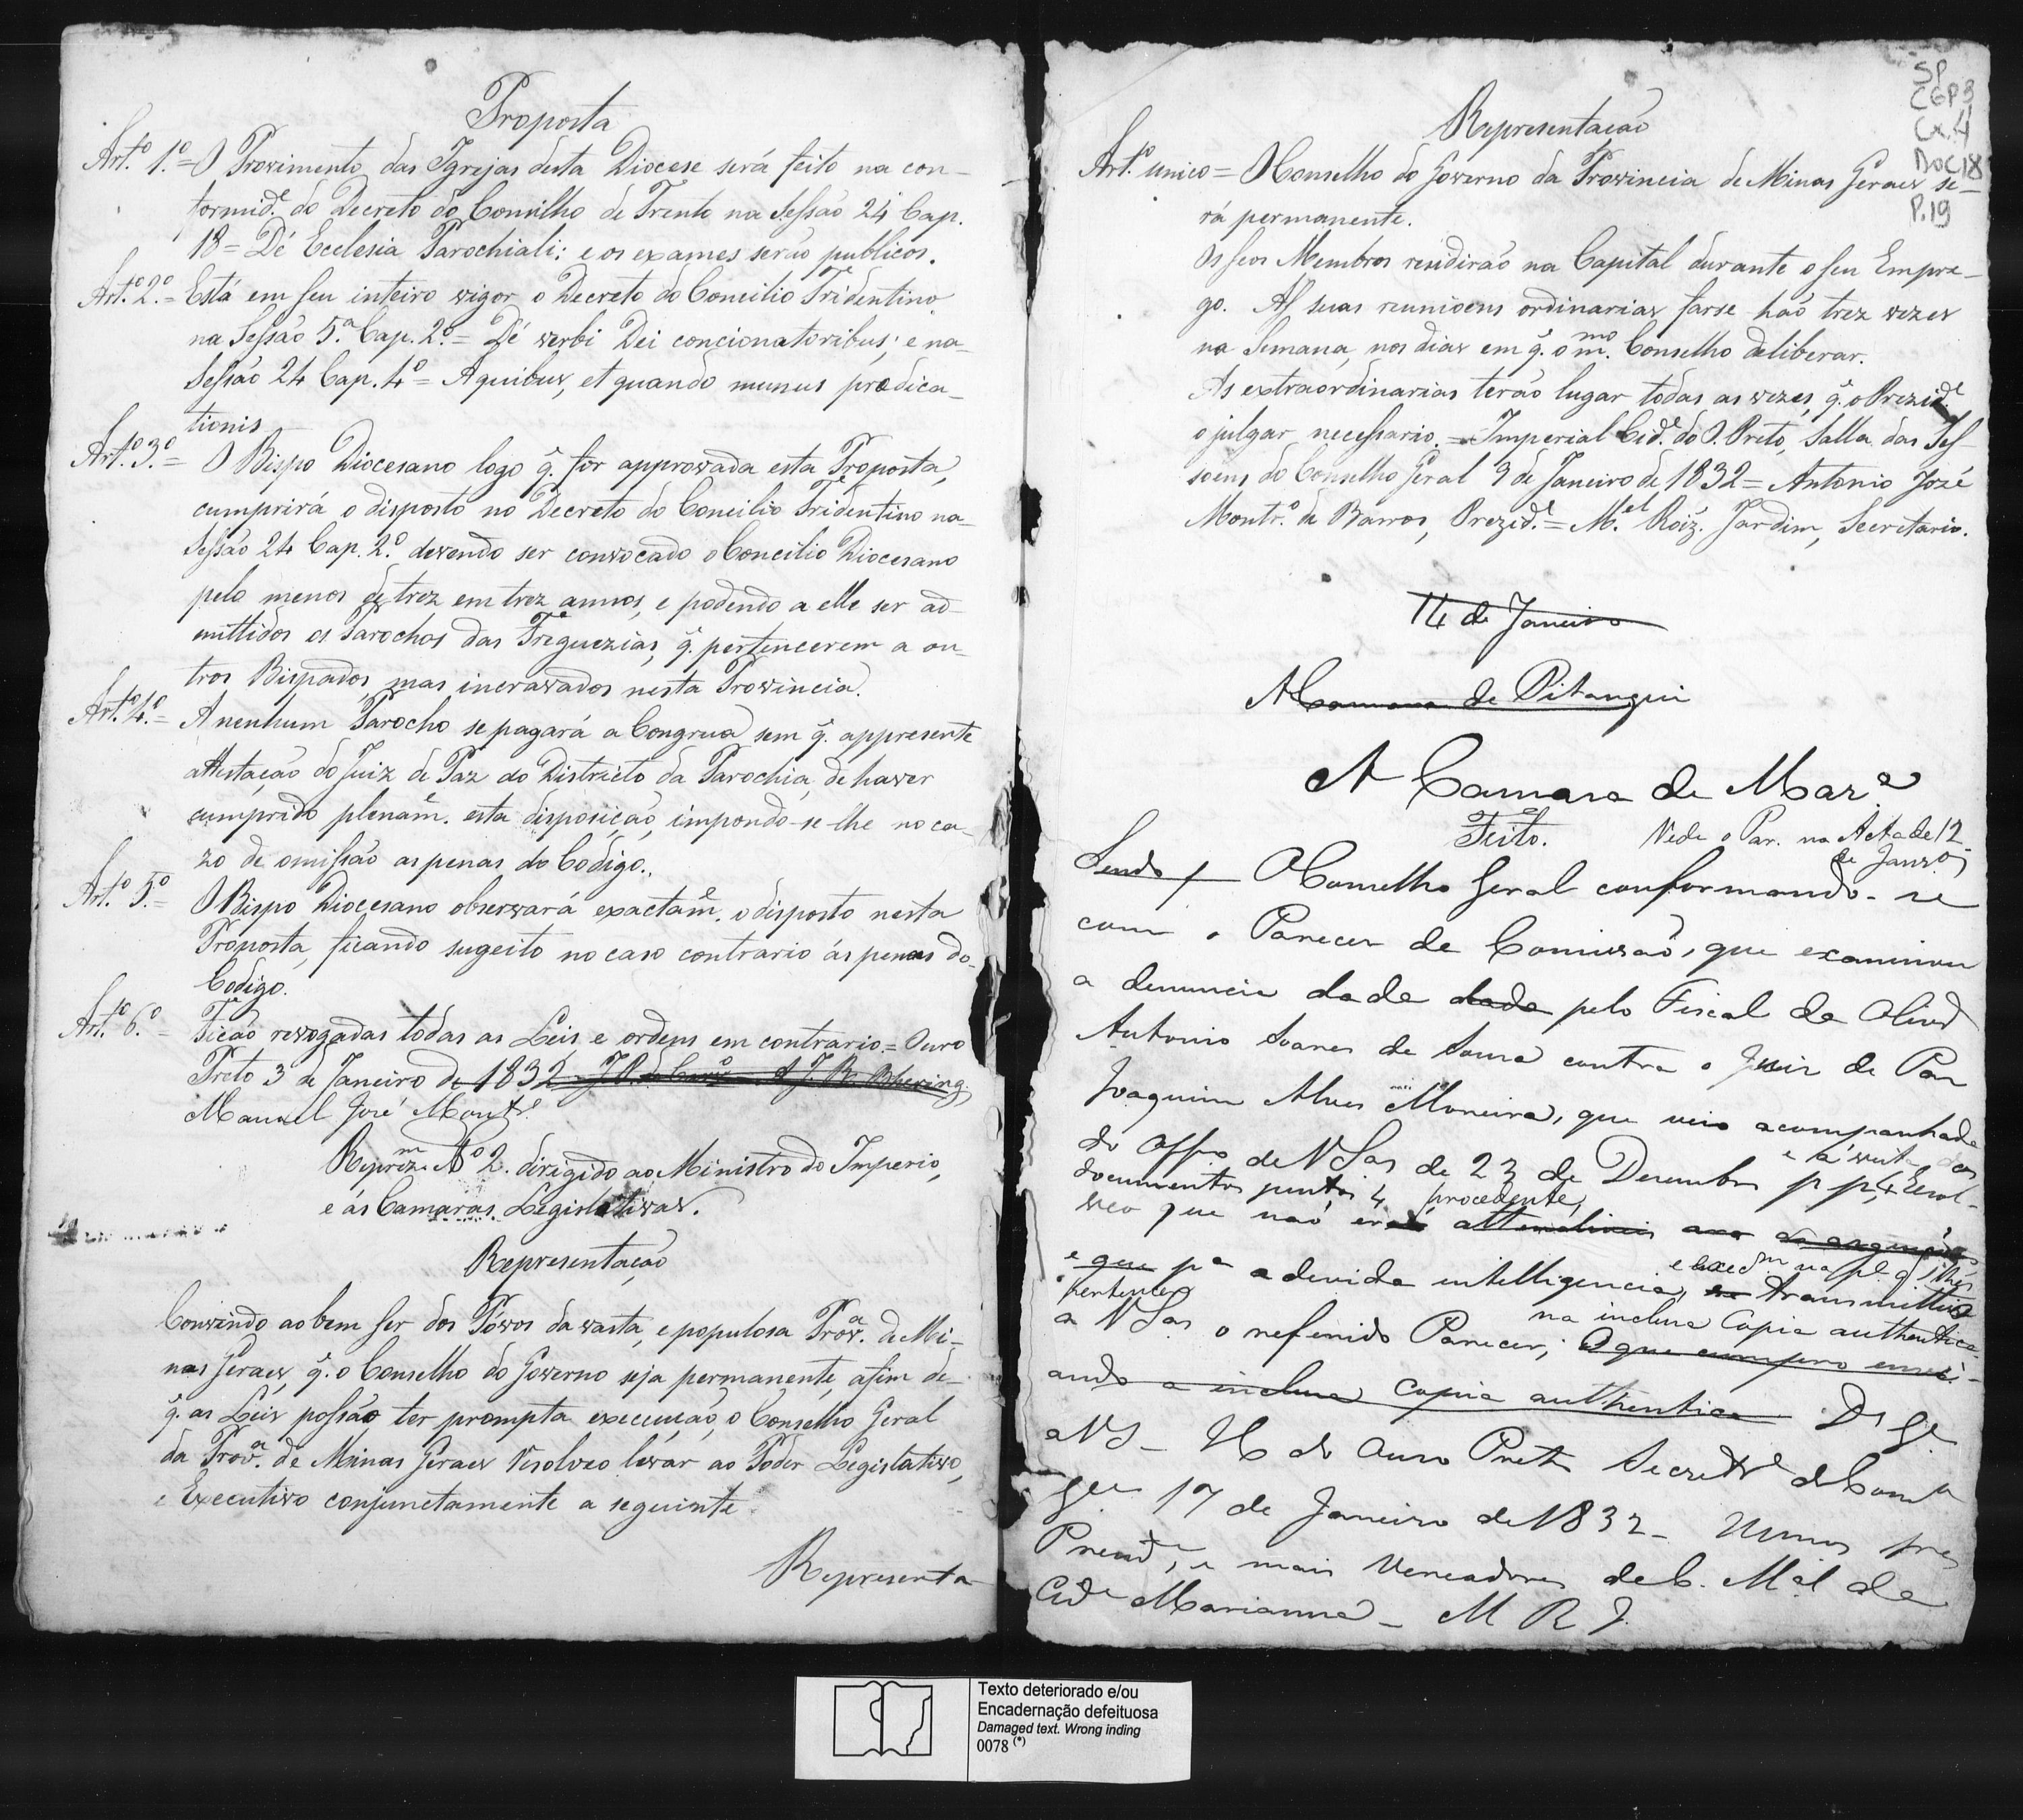 Proposta
Art.º 1.º = O Provimento das Igrejas desta Diocese será feito na con-
formid.e do Decreto do Concilho de Trento na Sessão 24 Cap.
18 = Dé Ecclesia Parochiali: e os exames serão publicos.
Art.º 2.º = Está em seu inteiro vigor o Decreto do Concilio Tridentino
na Sessão 5.ª Cap. 2.º = Dé verbi Dei concionatoribus; e na
Sessão 24 Cap. 4.º = A quibus, et quando munus prædica-
tionis
Art.º 3.º = O Bispo Diocesano logo q̃. for approvada esta Proposta,
cumprirá o disposto no Decreto do Concilio Tridentino na
Sessão 24 Cap. 2.º devendo ser convocado o Concilio Diocesano
pelo menos de trez em trez annos, e podendo a elle ser ad-
mittidos os Parochos das Freguezias, q̃. pertencerem a ou-
tros Bispados mas incravados nesta Provincia.
Art.º 4.º = A nenhum Parocho se pagará a Congrua sem q̃. appresente
attestação do Juiz de Paz do Districto da Parochia, de haver
cumprido plenam.e esta disposição, impondo-se-lhe no ca-
zo de omissão as penas do Codigo.
Art.º 5.º = O Bispo Diocesano observará exactam.e o disposto nesta
Proposta, ficando sugeito no caso contrario ás penas do
Codigo.
Art.º 6.º = Ficão revogadas todas as Leis, e ordens em contrario = Ouro
Preto 3 de Janeiro de 1832 A J R Bhering
Manoel José Montr.º
Reprez.m Nº 2. dirigido ao Ministro do Imperio,
e ás Camaras Legislativas.
Representação
Convindo ao bem ser dos Póvos da vasta, e populosa Prov.ª de Mi-
nas Geraes, q̃. o Conselho do Governo seja permanente, afim de
q̃. as Leis possão ter prompta execução, o Conselho Geral
da Prov.ª de Minas Geraes Resolveo levar ao Poder Legislativo,
e Executivo conjunctamente a seguinte
Representa
SP
CGP3
Cx.4
Doc 18
P.19
Representação
Art.º unico = O Conselho do Governo da Provincia de Minas Geraes se-
rá permanente.
Os seos Membros residirão na Capital durante o seu Empre-
go. As suas reunioens ordinarias farse hão trez vezes
na Semana, nos dias em q̃. o m.mo Conselho deliberar.
As extraordinarias terão lugar todas as vezes, q̃. o Prezid.e
o julgar necessario. = Imperial Cid.e do O. Preto, Salla das Ses-
soens do Conselho Geral 9 de Janeiro de 1832 = Antonio José
Montr.º de Barros, Prezid.e = M.el Roiz. Jardim, Secretario.
14 de Janeiro
A Camara de Pitangui
A Camara de Mar.ª
Feito. Vede o Par. na Acta de 12
de Janr.º
Sendo p O Conselho Geral conformando-se
com o Parecer de Comissão, que examinou
a denuncia dada dada pelo Fiscal de
Antonio Soares de Sousa contra o Juiz de Paz
Joaquim Alves Moreira, que veio acompanhada
do Off.º de VSas de 23 de Dezembro p p, e á vista dos
documentos juntos, Resol-
veo que não era procedente,
e que p.ª a devida intelligencia, transmittisse
pertence na inclusa Copia authentica
a VSas o referido Parecer; O que cumpro envi-
ando a inclusa Copia authentica Ds Ge
a VS - de Ouro Preto Secretr.ª do Cons.º
Ger 17 de Janeiro de 1832 -
Prezid.e, e mais Vereadores da C. M.al da
Cid.e Marianna - M R J.
Texto deteriorado e/ou
Encadernação defeituosa
Damaged text. Wrong inding
0078 (*)